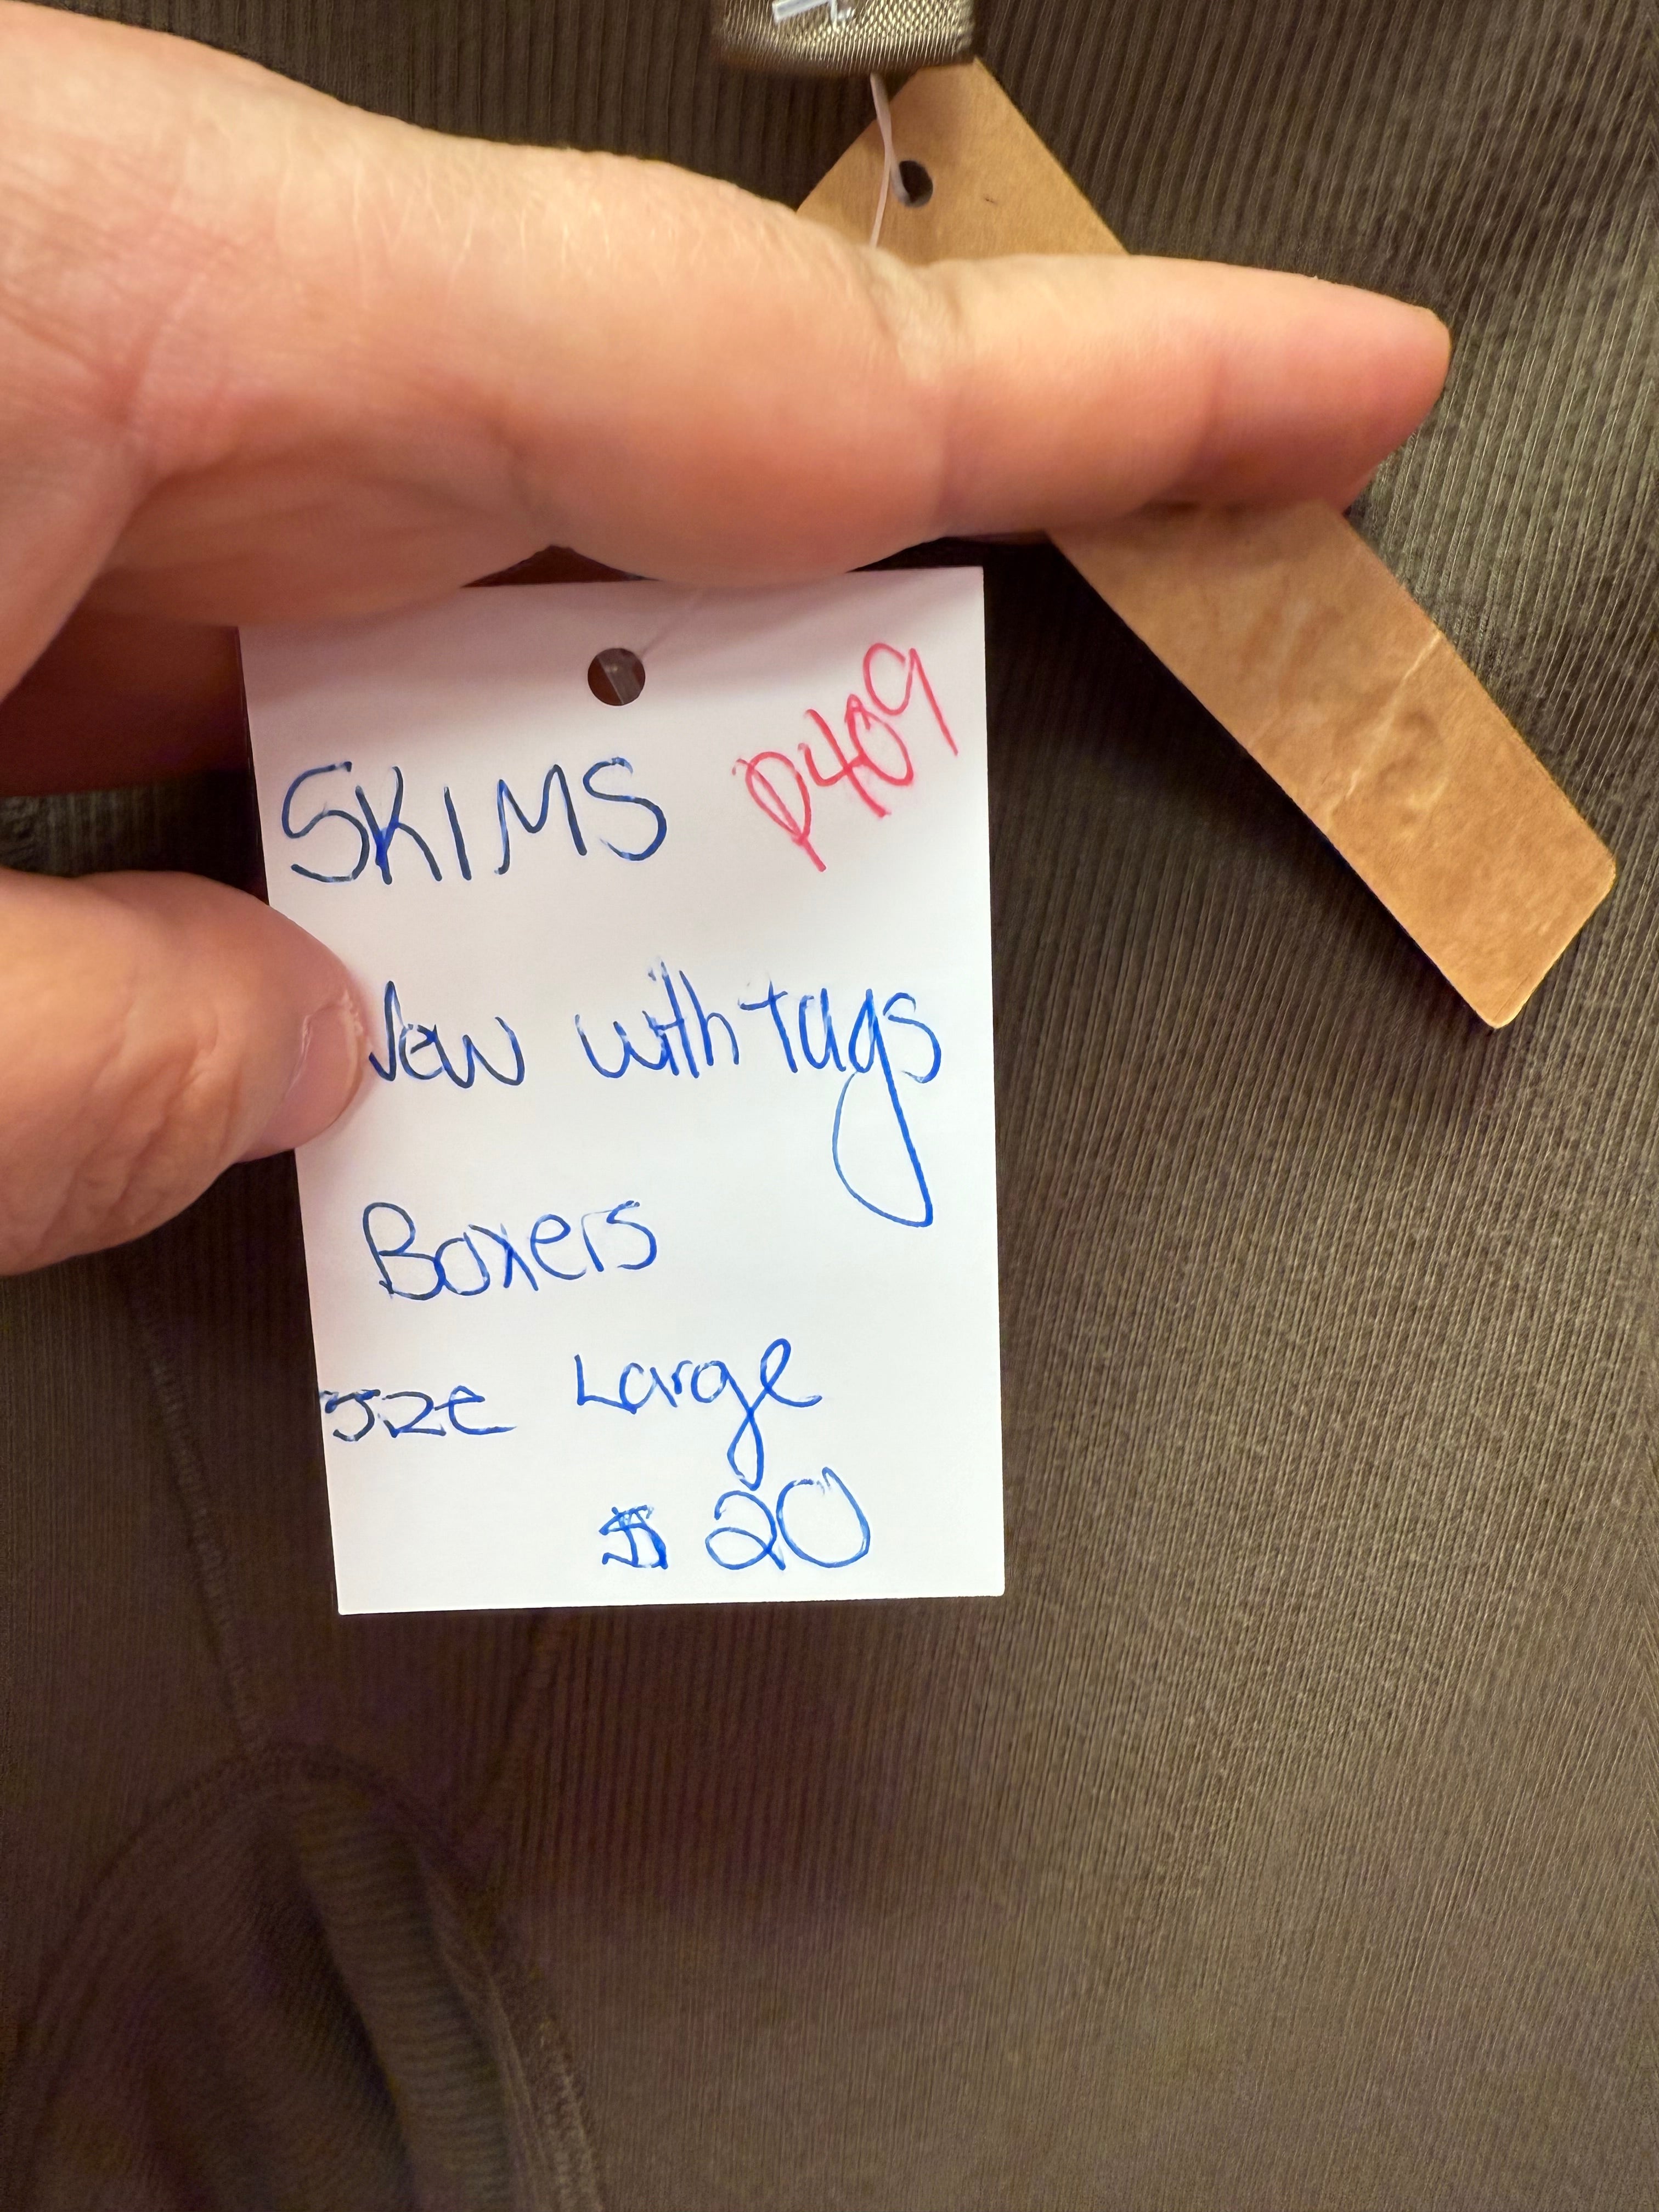 SKIMS P409
New with tags
Boxers
size Large
$20